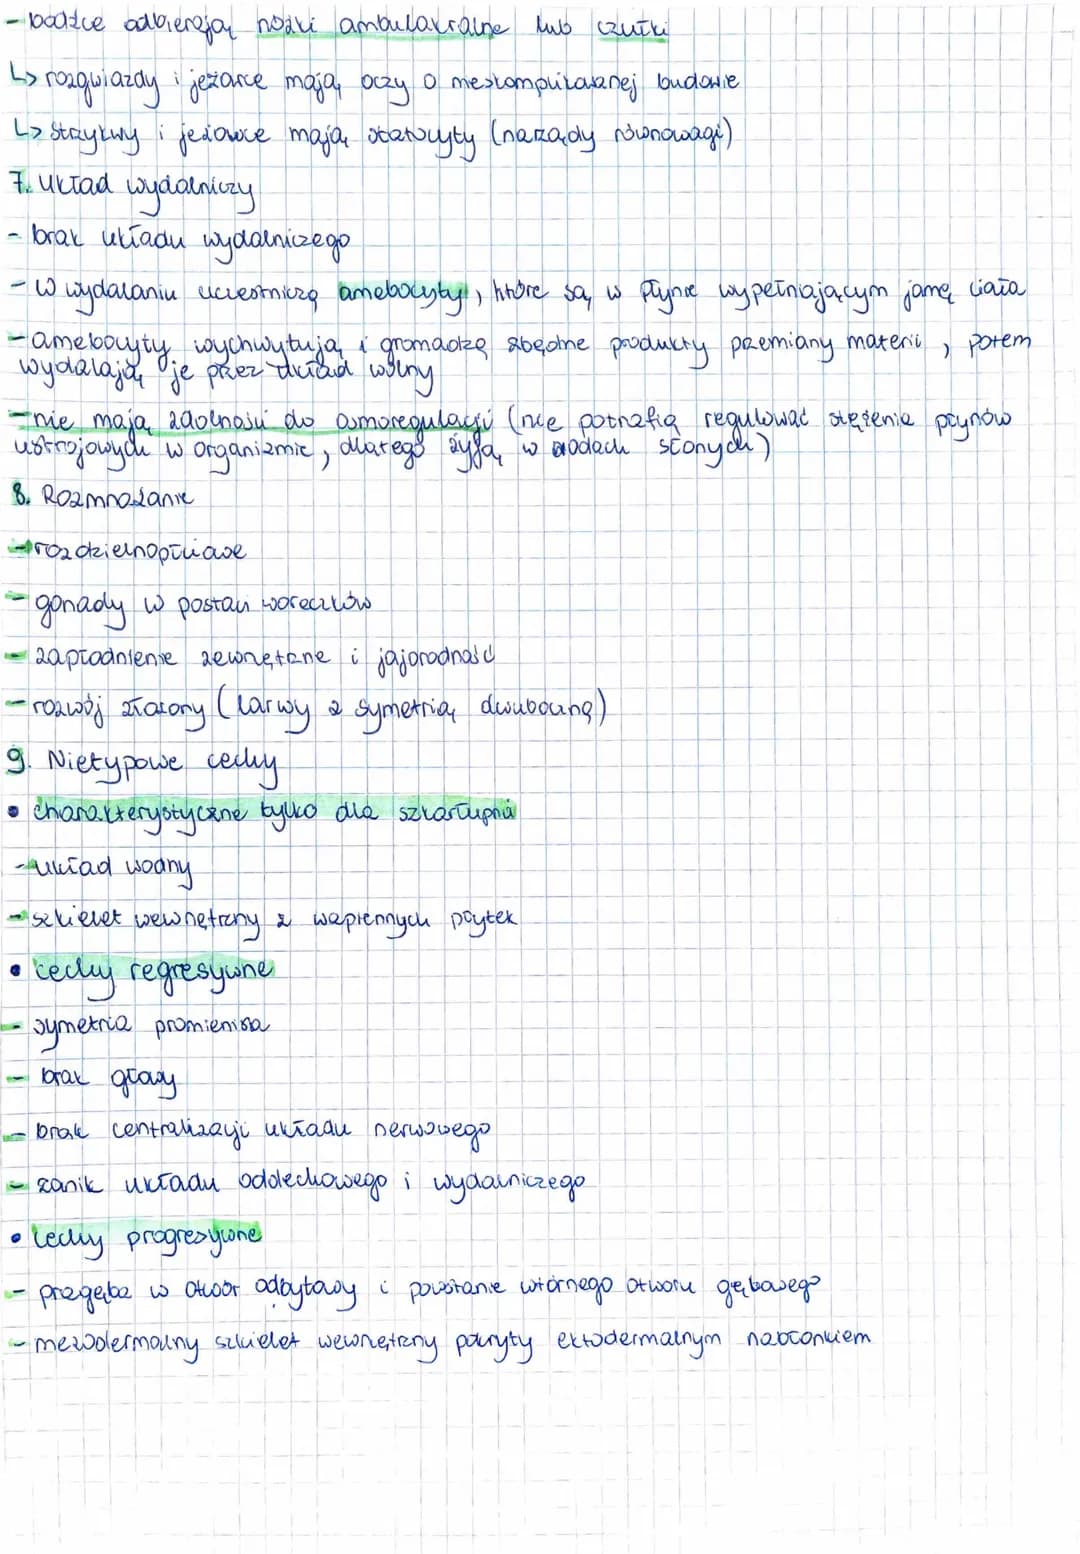 - bodźce odbierają nóżki ambulakralne lub czułki
↳ rozgwiazdy i jeżowce mają oczy o nieskomplikowanej budowie
↳ strzykwy i jeżowce mają statocyty (narządy równowagi)
7. Układ wydalniczy
- brak układu wydalniczego
- W wydalaniu uczestniczą amebocyty, które są w płynie wypełniającym jamę ciała
- amebocyty wychwytują i gromadzą zbędne produkty przemiany materii, potem
wydalają je przez układ wodny
- nie mają zdolności do osmoregulacji (nie potrafią regulować stężenia płynów
ustrojowych w organizmie, dlatego żyją w wodach słonych)
8. Rozmnażanie
- rozdzielnopłciowe
- gonady w postaci woreczków
- zapłodnienie zewnętrzne i jajorodność
- rozwój złożony (larwy z symetrią dwuboczną)
9. Nietypowe cechy
• charakterystyczne tylko dla szkarłupni
- układ wodny
- szkielet wewnętrzny z wapiennych płytek
• cechy regresywne
- symetria promienista
- brak głowy
- brak centralizacji układu nerwowego
- zanik układu oddechowego i wydalniczego
• cechy progresywne
- pragęba w otwór odbytowy i powstanie wtórnego otworu gębowego
- mezodermalny szkielet wewnętrzny pokryty ektodermalnym nabłonkiem